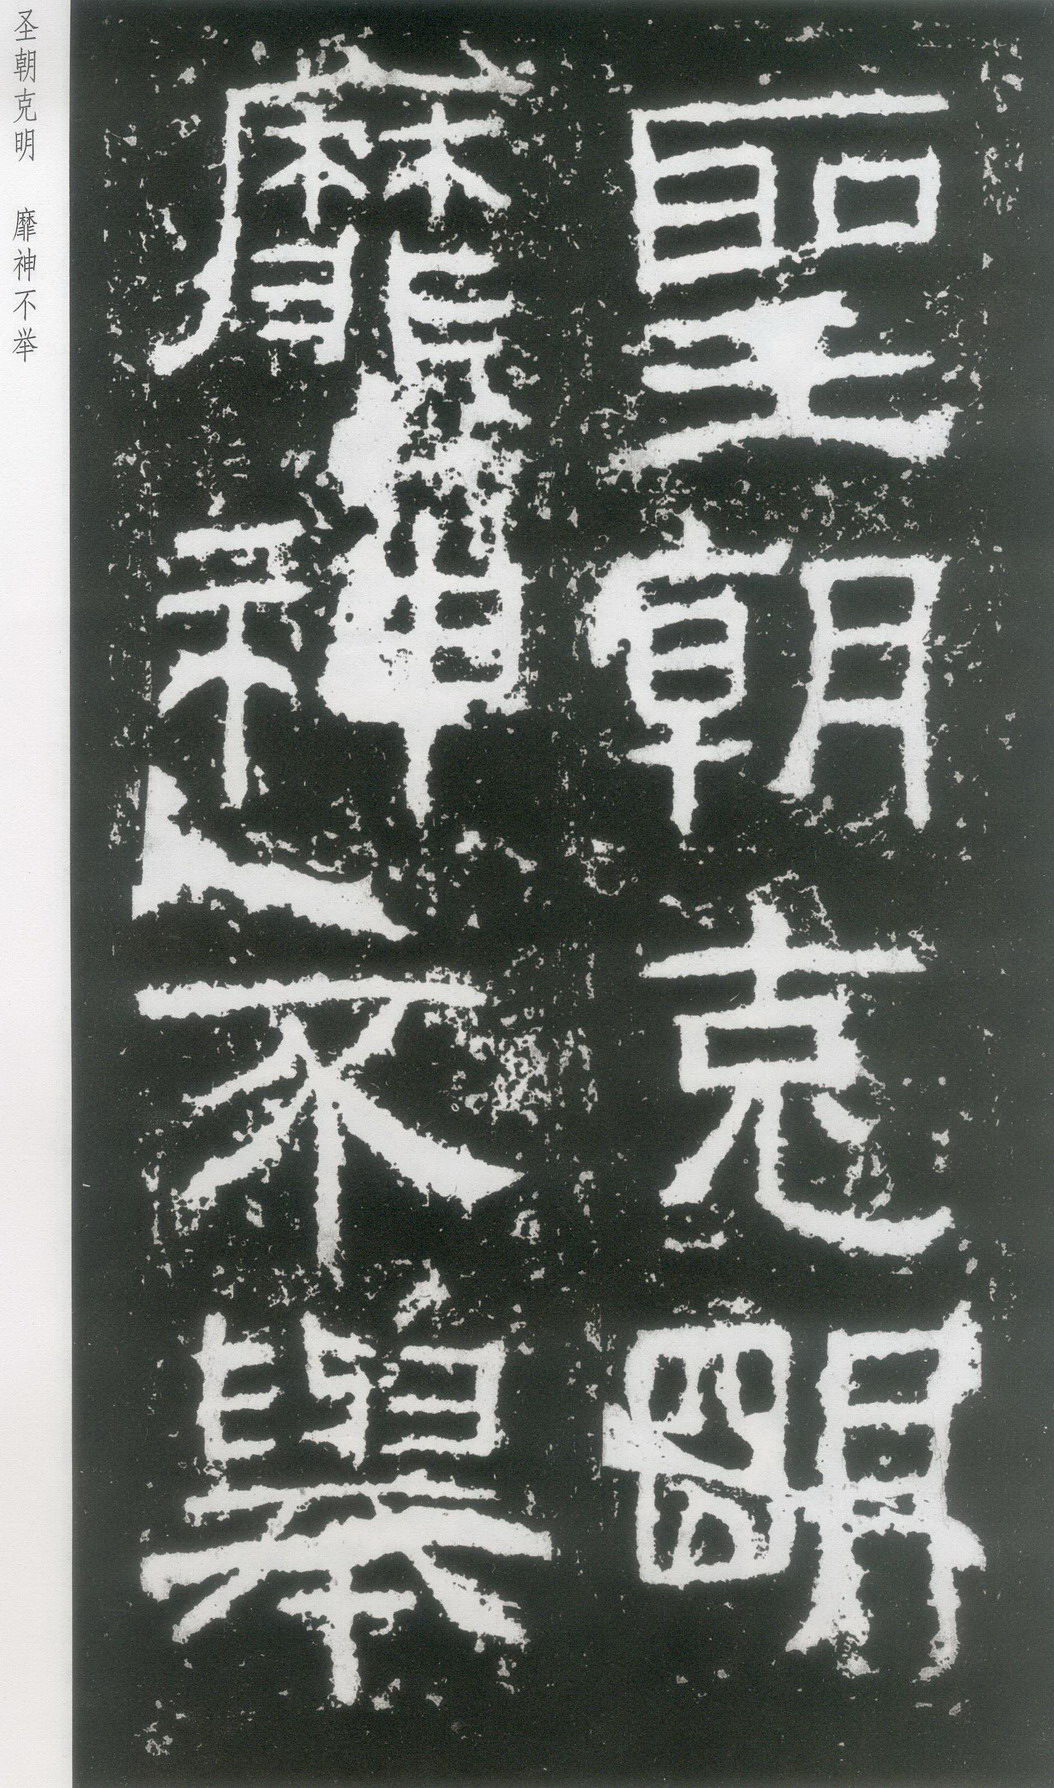 聖朝克明
靡神不舉
圣朝克明 靡神不举